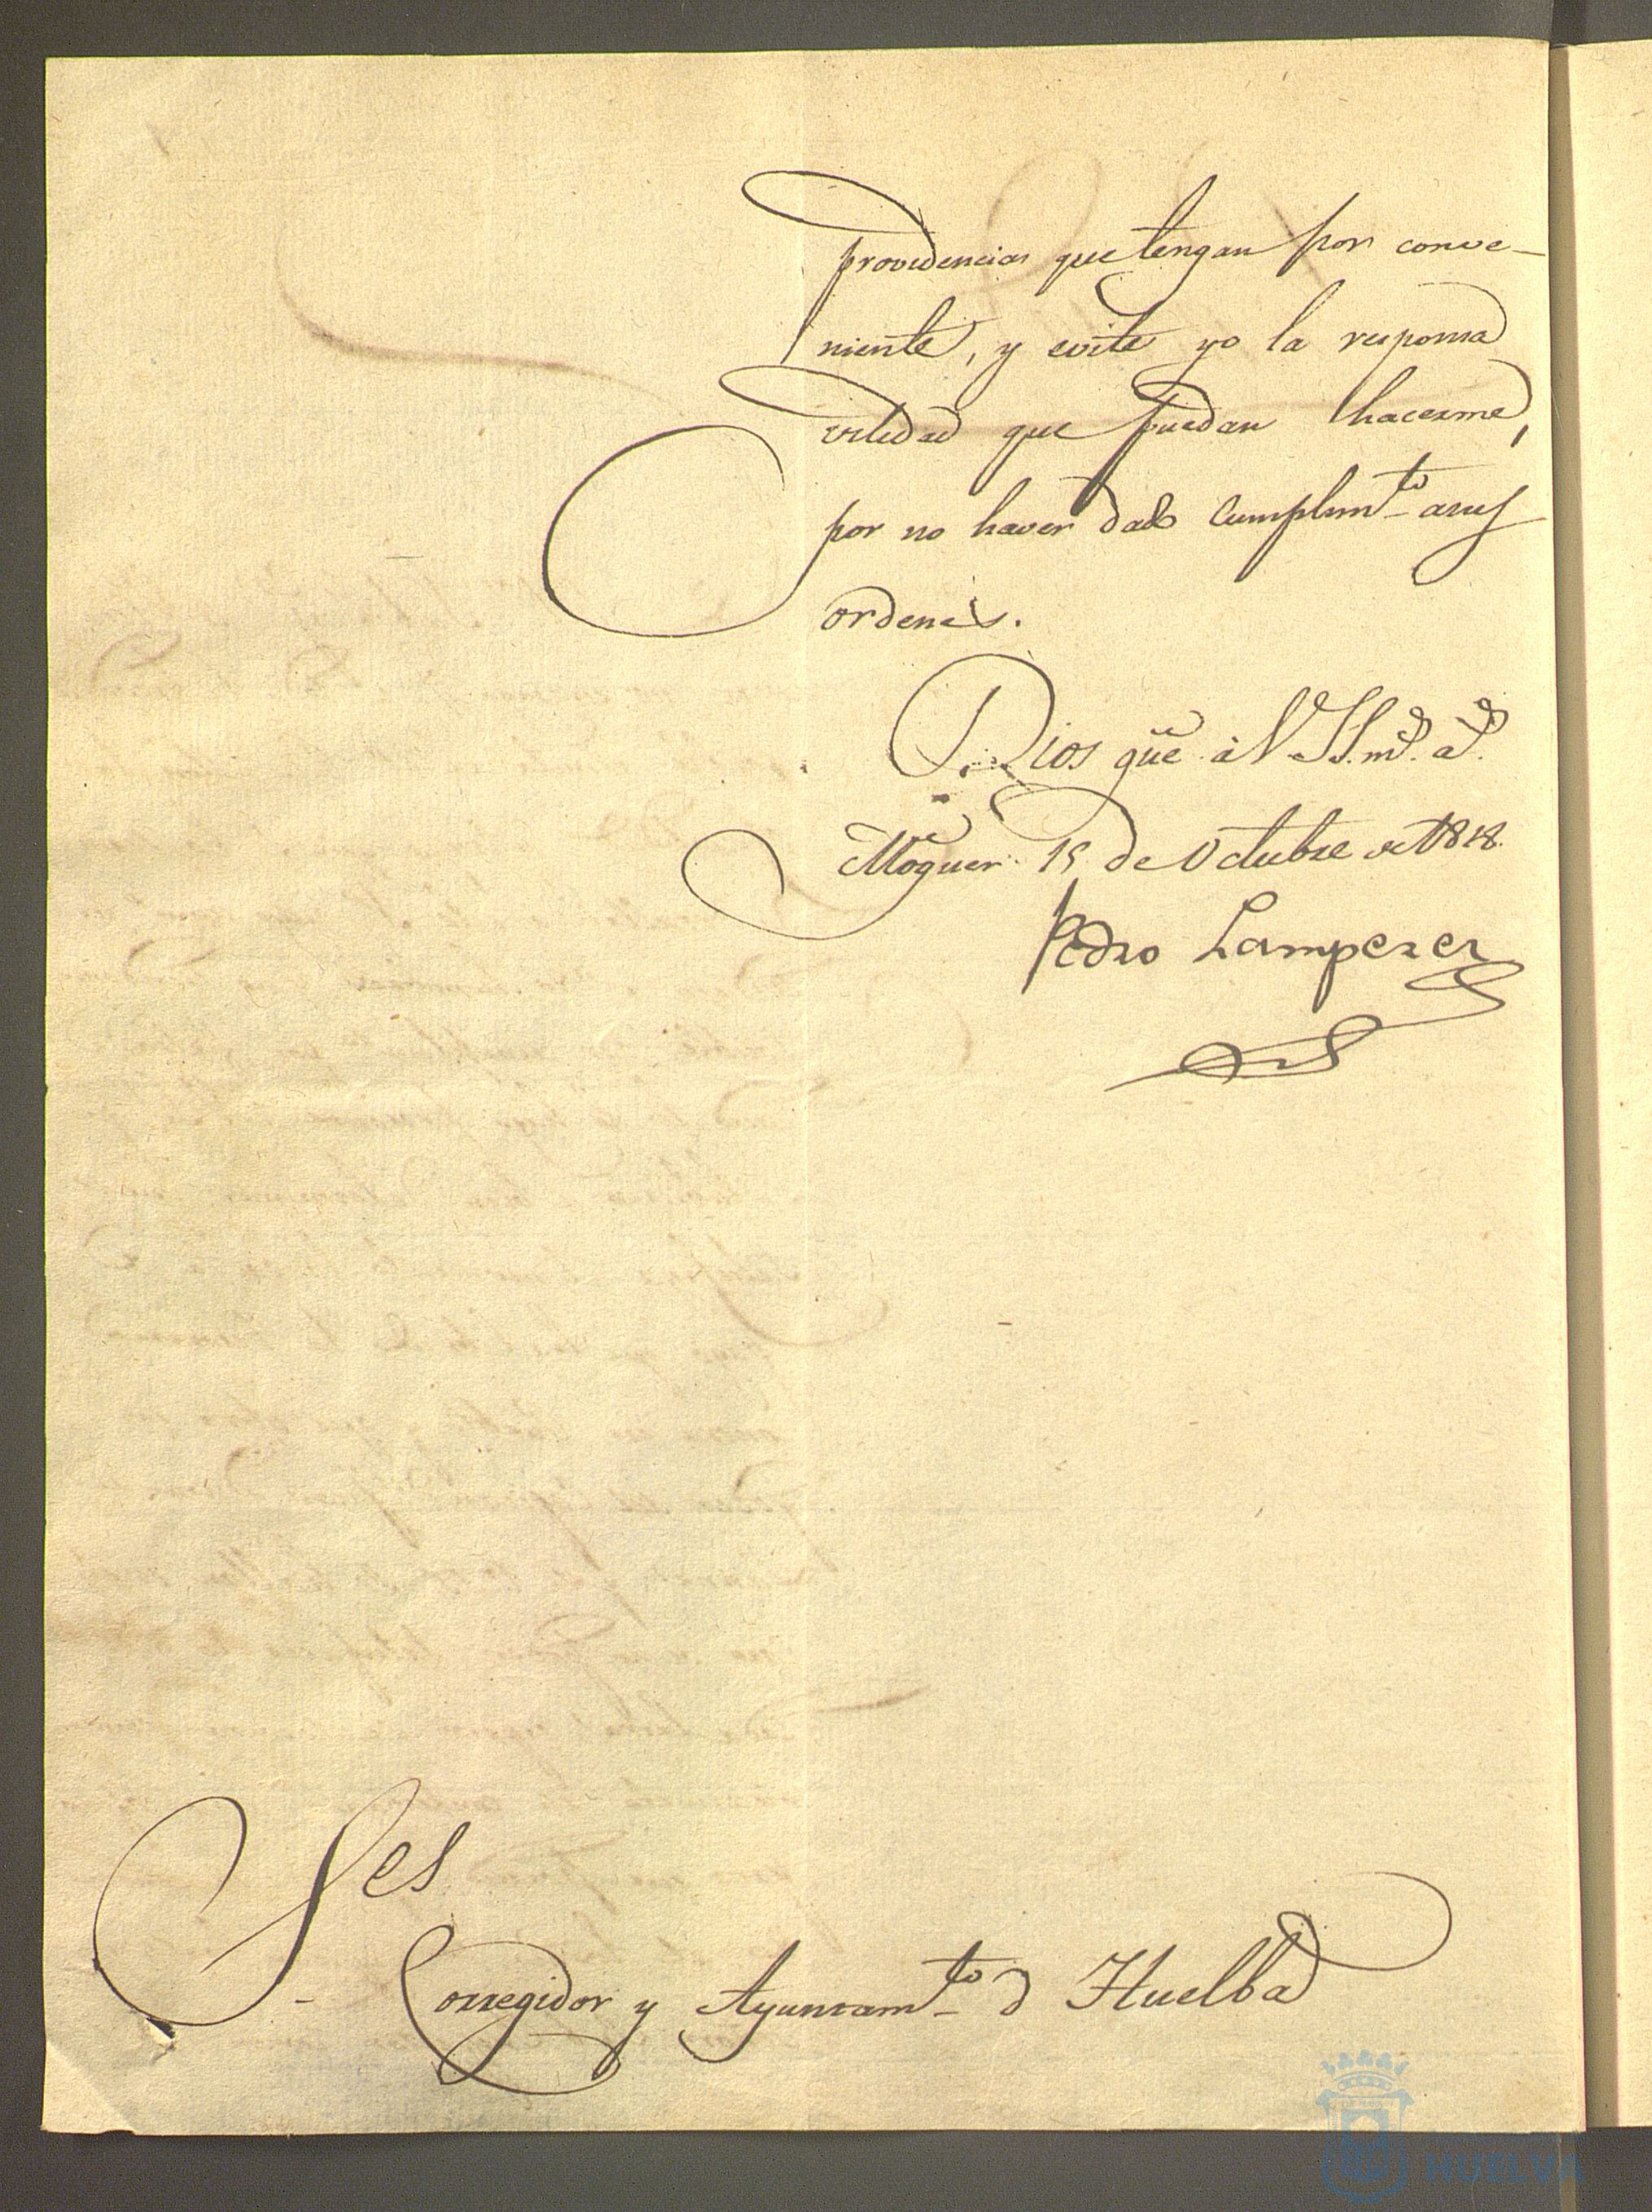 providencias que tengan por conve-
niente, y evite yo la responsa
vilidad que puedan hacerme,
por no haver dado Cumplimto asus
ordenes.
Dios gūe. á V.SS. ms. as.
Moguer 15 de Octubre de 1818.
Pedro Lamperez
Ses
Corregidor y Ayuntamto d Huelba
HUELVA